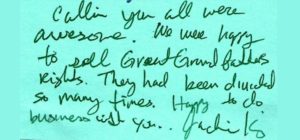 Callin you all were
awesome. We were happy
to sell Great Grand fathers
Rights. They had been divided
so many times. Happy to do
business with you.. Jackie K